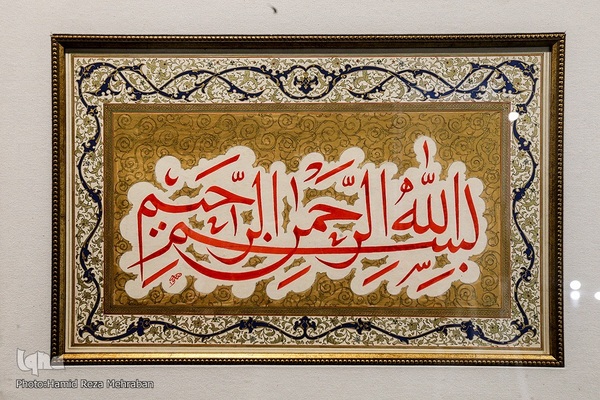 بسم الله الرحمن الرحیم
Photo:Hamid Reza Mehraban